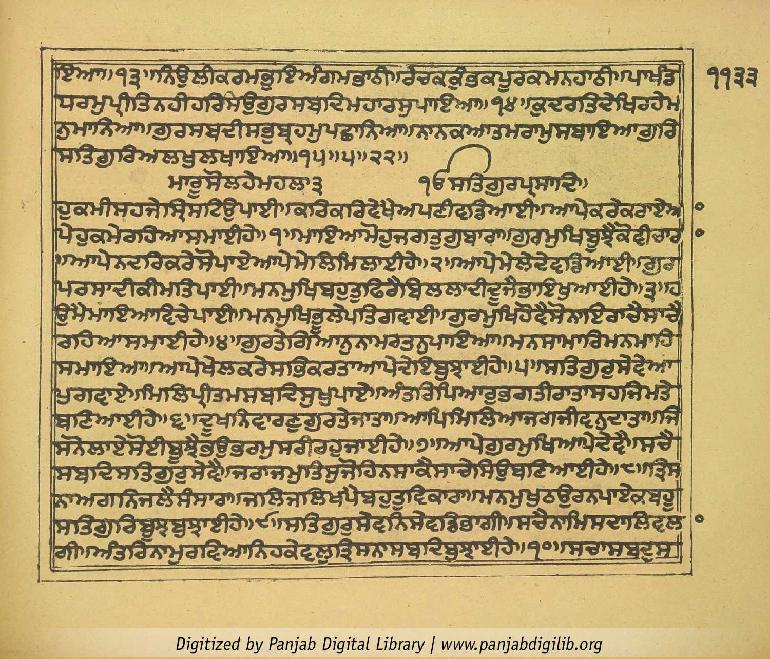 ੧੧੩੩
ਇਆ॥੧੩॥ਨਿਉਲੀਕਰਮਭੁਇਅੰਗਮਭਾਠੀ॥ਰੇਚਕਕੁੰਭਕਪੂਰਕਮਨਹਾਠੀ॥ਪਾਖੰਡ
ਧਰਮੁਪ੍ਰੀਤਿਨਹੀਹਰਿਸਿਉਗੁਰਸਬਦਿਮਹਾਰਸੁਪਾਇਆ॥੧੪॥ਕੁਦਰਤਿਦੇਖਿਰਹੇਮ
ਨੁਮਾਨਿਆ॥ਗੁਰਸਬਦੀਸਭੁਬ੍ਰਹਮੁਪਛਾਨਿਆ॥ਨਾਨਕਆਤਮਰਾਮੁਸਬਾਇਆਗੁਰਿ
ਸਤਿਗੁਰਿਅਲਖੁਲਖਾਇਆ॥੧੫॥੫॥੨੨॥
ਮਾਰੂਸੋਲਹੇਮਹਲਾ੩ ੴਸਤਿਗੁਰਪ੍ਰਸਾਦਿ॥
ਹੁਕਮੀਸਹਜੇਸ੍ਰਿਸਟਿਉਪਾਈ॥ਕਰਿਕਰਿਵੇਖੈਅਪਣੀਵਡਿਆਈ॥ਆਪੇਕਰੇਕਰਾਏਆ
ਪੇਹੁਕਮੇਰਹਿਆਸਮਾਈਹੇ॥੧॥ਮਾਇਆਮੋਹੁਜਗਤੁਗੁਬਾਰਾ॥ਗੁਰਮੁਖਿਬੂਝੈਕੋਵੀਚਾਰਾ
॥ਆਪੇਨਦਰਿਕਰੇਸੋਪਾਏਆਪੇਮੇਲਿਮਿਲਾਈਹੇ॥੨॥ਆਪੇਮੇਲੇਦੇਵਡਿਆਈ॥ਗੁਰ
ਪਰਸਾਦੀਕੀਮਤਿਪਾਈ॥ਮਨਮੁਖਿਬਹੁਤੁਫਿਰੈਬਿਲਲਾਦੀਦੂਜੈਭਾਇਖੁਆਈਹੇ॥੩॥ਹ
ਉਮੈਮਾਇਆਵਿਚੇਪਾਈ॥ਮਨਮੁਖਭੂਲੇਪਤਿਗਵਾਈ॥ਗੁਰਮੁਖਿਹੋਵੈਸੋਨਾਇਰਾਚੈਸਾਚੈ
ਰਹਿਆਸਮਾਈਹੇ॥੪॥ਗੁਰਤੇਗਿਆਨੁਨਾਮਰਤਨੁਪਾਇਆ॥ਮਨਸਾਮਾਰਿਮਨਮਾਹਿ
ਸਮਾਇਆ॥ਆਪੇਖੇਲਕਰੇਸਭਿਕਰਤਾਆਪੇਦੇਇਬੁਝਾਈਹੇ॥੫॥ਸਤਿਗੁਰੁਸੇਵੇਆ
ਪੁਗਵਾਏ॥ਮਿਲਿਪ੍ਰੀਤਮਸਬਦਿਸੁਖੁਪਾਏ॥ਅੰਤਰਿਪਿਆਰੁਭਗਤੀਰਾਤਾਸਹਜਿਮਤੇ
ਬਣਿਆਈਹੇ॥੬॥ਦੂਖਨਿਵਾਰਣੁਗੁਰਤੇਜਾਤਾ॥ਆਪਿਮਿਲਿਆਜਗਜੀਵਨੁਦਾਤਾ॥ਜਿ
ਸਨੋਲਾਏਸੋਈਬੂਝੈਭਉਭਰਮੁਸਰੀਰਹੁਜਾਈਹੇ॥੭॥ਆਪੇਗੁਰਮੁਖਿਆਪੇਦੇਵੈ॥ਸਚੈ
ਸਬਦਿਸਤਿਗੁਰੁਸੇਵੈ॥ਜਰਾਜਮੁਤਿਸੁਜੋਹਿਨਸਾਕੈਸਾਚੇਸਿਉਬਣਿਆਈਹੇ॥੮॥ਤ੍ਰਿਸ
ਨਾਅਗਨਿਜਲੈਸੰਸਾਰਾ॥ਜਲਿਜਲਿਖਪੈਬਹੁਤੁਵਿਕਾਰਾ॥ਮਨਮੁਖੁਠਉਰਨਪਾਏਕਬਹੂ
ਸਤਿਗੁਰਿਬੂਝਬੁਝਾਈਹੇ॥੯॥ਸਤਿਗੁਰਸੇਵਨਿਸੇਵਡਭਾਗੀ॥ਸਚੈਨਾਮਿਸਦਾਲਿਵਲ
ਗੀ॥ਅੰਤਰਿਨਾਮੁਰਵਿਆਨਿਹਕੇਵਲੁਤ੍ਰਿਸਨਾਸਬਦਿਬੁਝਾਈਹੇ॥੧੦॥ਸਚਾਸਬਦੁਸ
Digitized by Panjab Digital Library | www.panjabdigilib.org